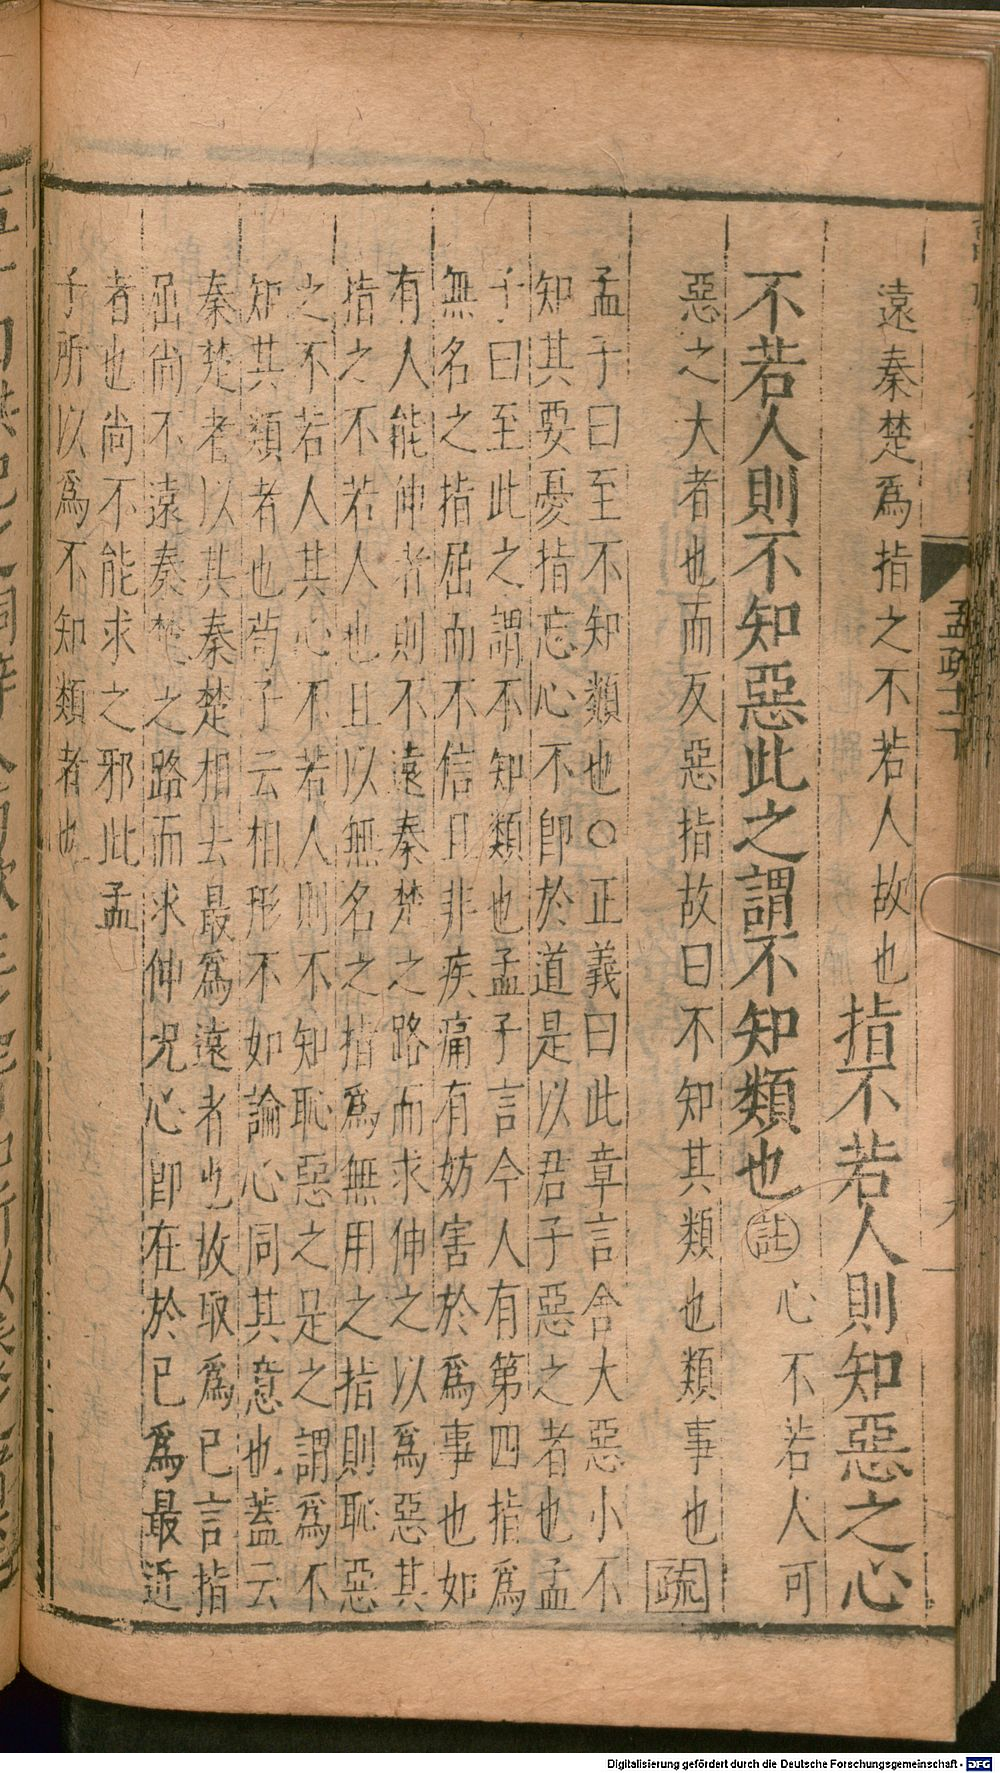 遠秦楚爲指之不若人故也指不若人則知惡之心
不若人則不知惡此之謂不知類也註心不若人可
惡之大者也而反惡指故曰不知其類也類事也疏
孟子曰至不知類也○正義曰此章言舍大惡小不
知其要憂指忘心不卽於道是以君子惡之者也孟
子曰至此之謂不知類也孟子言今人有第四指爲
無名之指屈而不信且非疾痛有妨害於爲事也如
有人能伸者則不遠秦楚之路而求伸之以爲惡其
指之不若人也且以無名之指爲無用之指則恥惡
之不若人其心不若人則不知恥惡之是之謂爲不
知其類者也荀子云相形不如論心同其意也蓋云
秦楚者以其秦楚相去最爲遠者也故取爲已言指
屈尚不遠秦楚之路而求伸况心卽在於已爲最近
者也尚不能求之邪此孟
子所以爲不知類者也
孟疏十一下
Digitalisierung gefördert durch die Deutsche Forschungsgemeinschaft - DFG